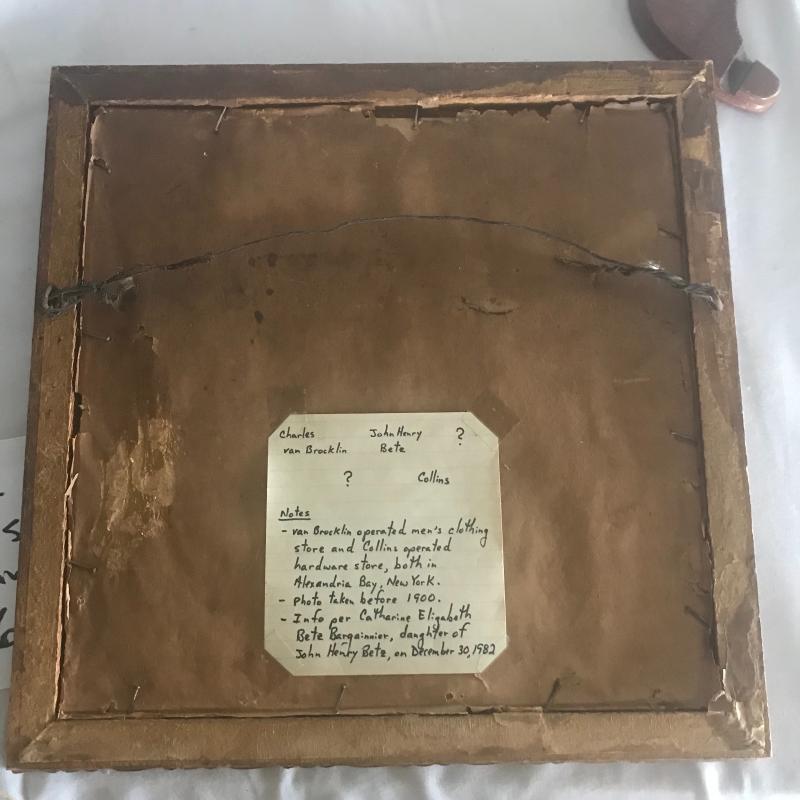 Charles John Henry ?
van Brocklin Betz
? Collins
Notes
- van Brocklin operated men's clothing
store and Collins operated
hardware store, both in
Alexandria Bay, New York.
- Photo taken before 1900.
- Info per Catharine Elizabeth
Betz Bargainnier, daughter of
John Henry Betz, on December 30, 1982